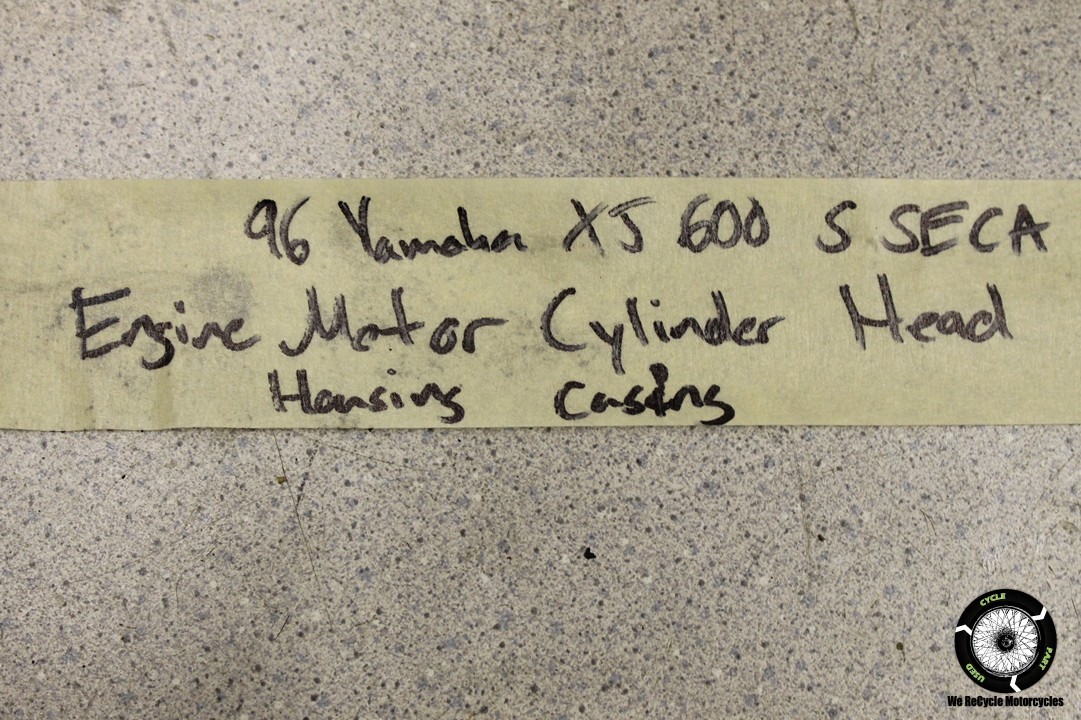 96 Yamaha XJ 600 S SECA
Engine Motor Cylinder Head
Housing Casing
CYCLE
PART
USED
We ReCycle Motorcycles